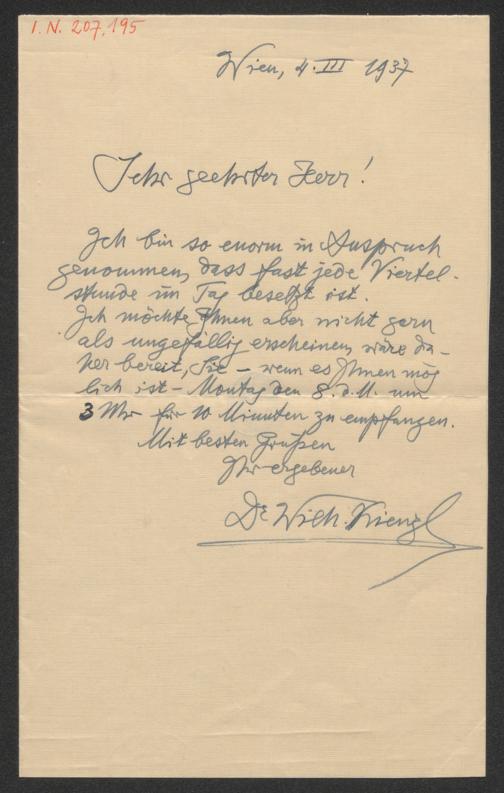 I. N. 207,195
Wien, 4. III 1937
Sehr geehrter Herr!
Ich bin so enorm in Anspruch
genommen, dass fast jede Viertel-
stunde im Tag besetzt ist.
Ich möchte Ihnen aber nicht gern
als ungefällig erscheinen, wäre da-
her bereit, Sie – wenn es Ihnen mög
lich ist – Montag den 8. d. M. um
3 Uhr für 10 Minuten zu empfangen.
Mit besten Grüßen
Ihr ergebener
Dr Wilh. Kienzl